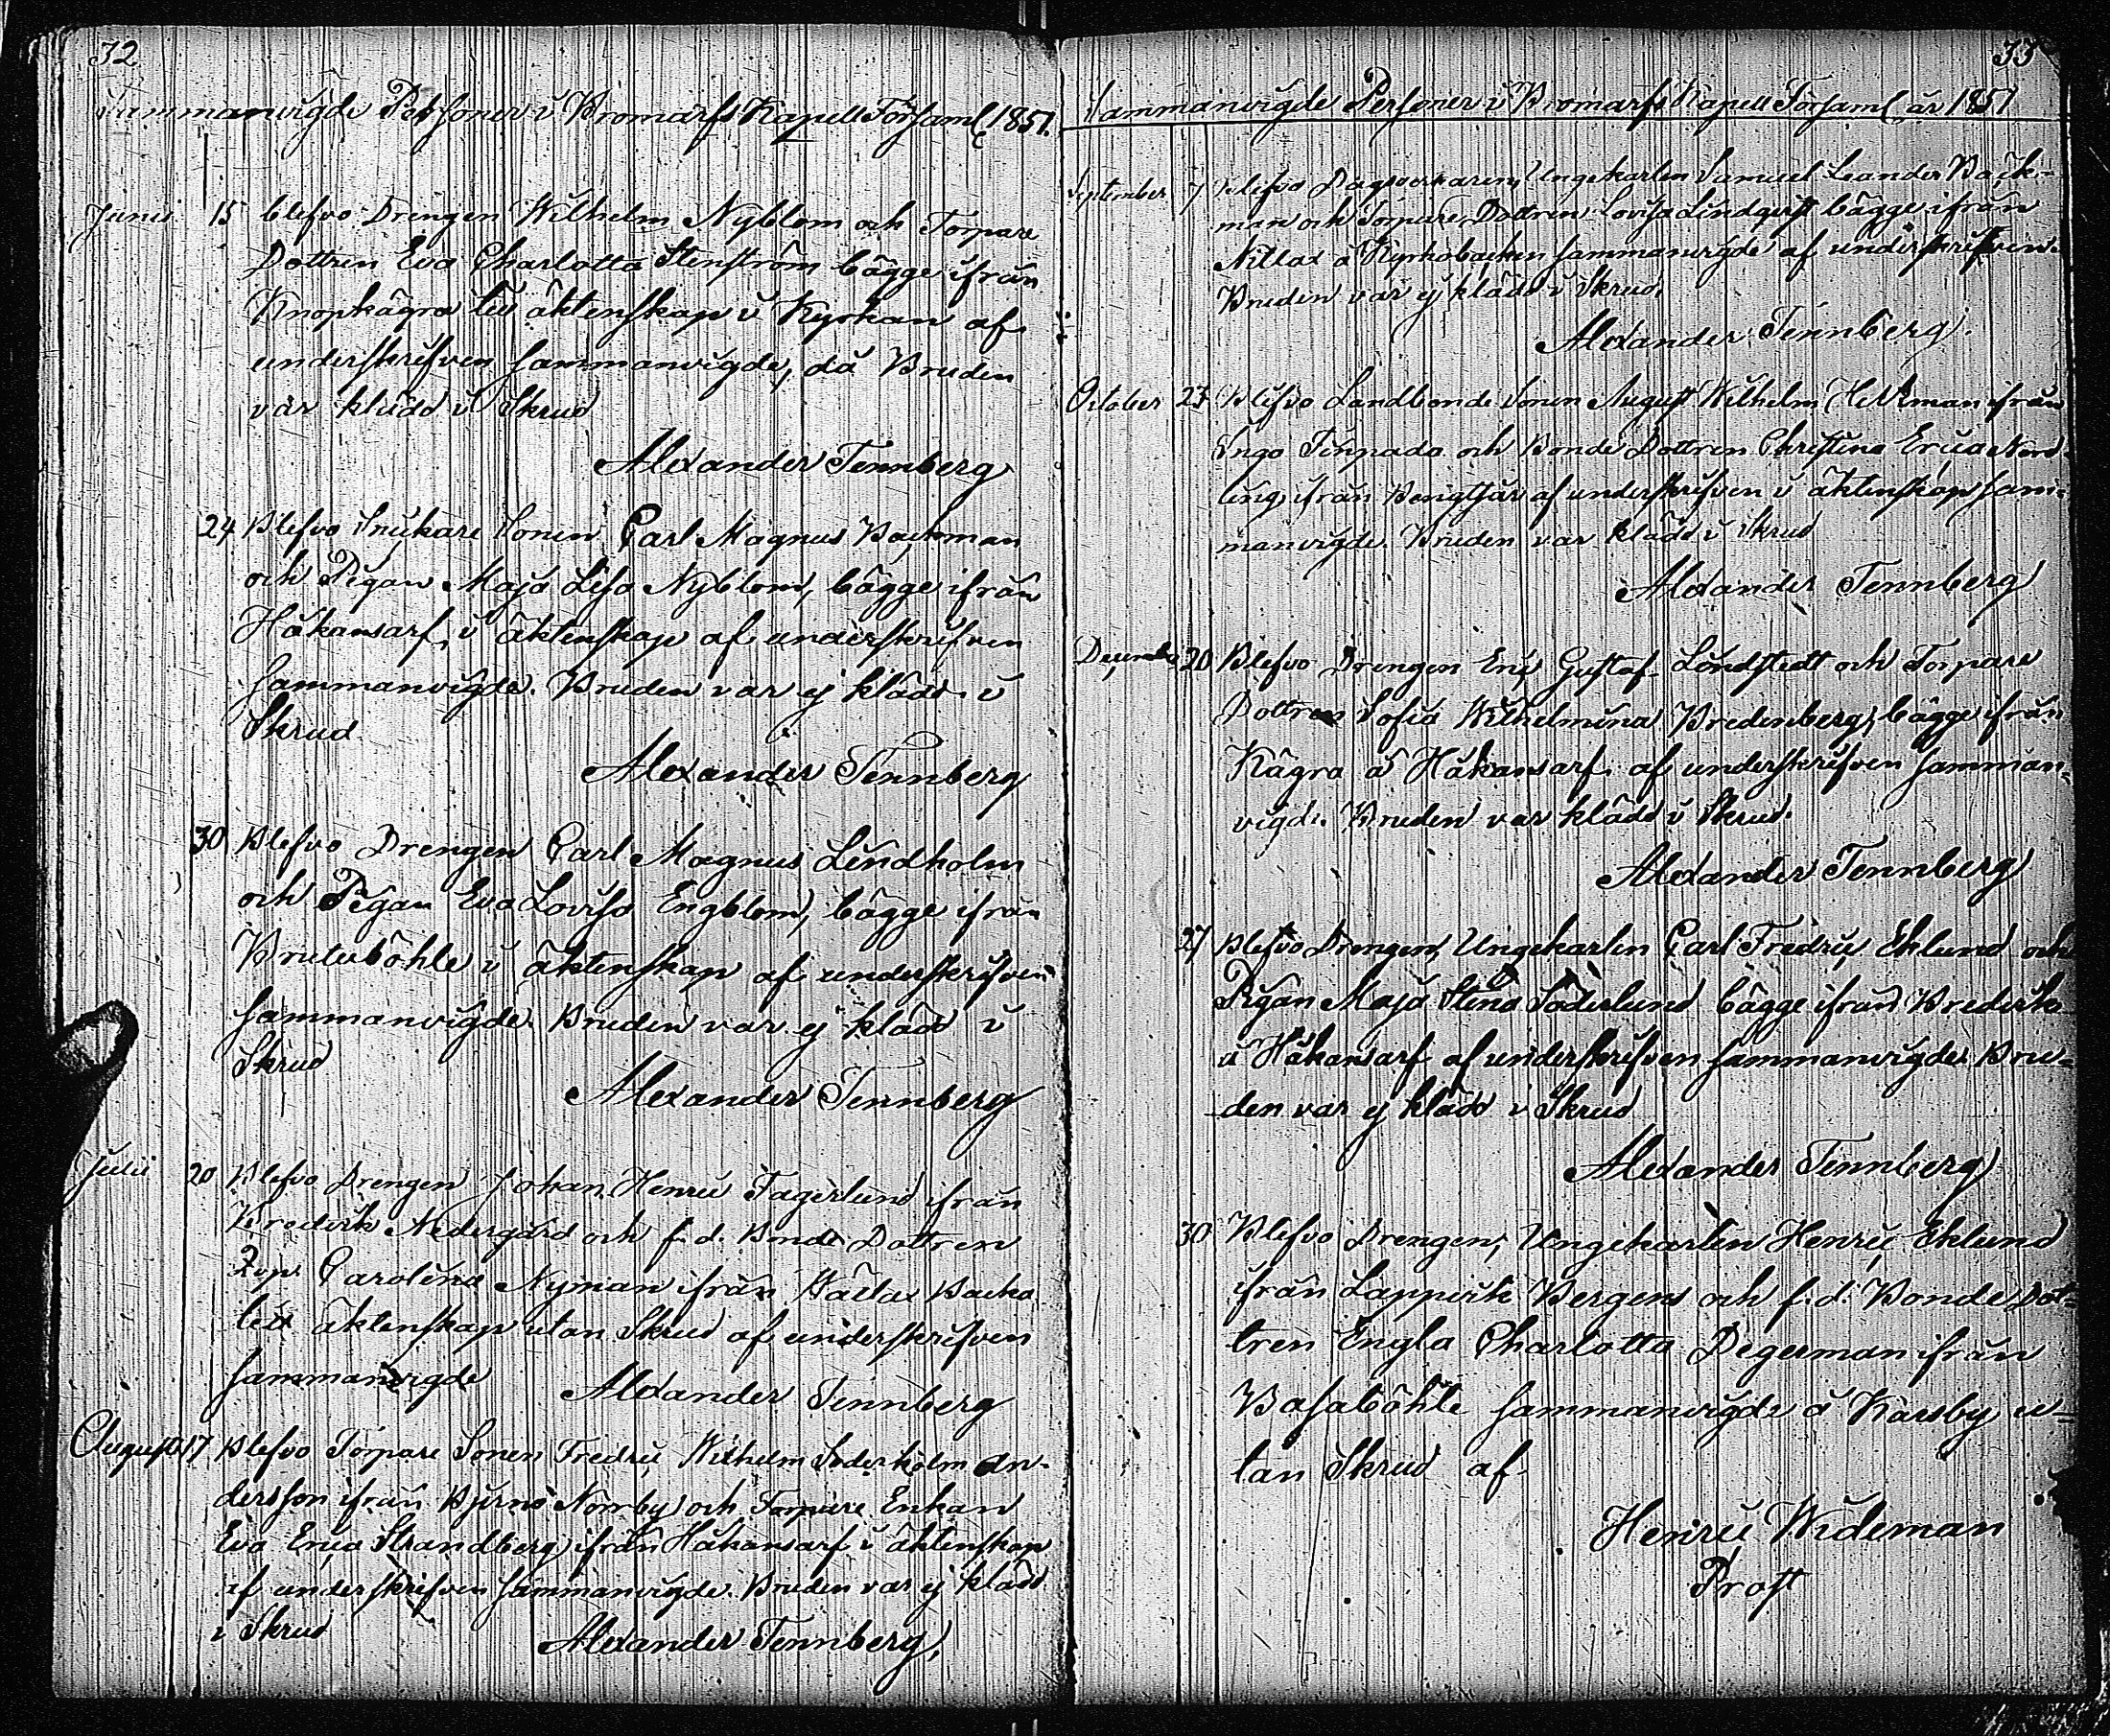 32
Sammanvigde Personer i Bromarfs Kapell Församl 1851.
Junii 15 blefvo Drengen Wilhelm Nyblom och Torpare
Dottren Eva Charlotta Stenström bägge ifrån
Knopkägra till äktenskap i Kyrkan af
underskrifven sammanvigde, då Bruden
var klädd i Skrud
Alexander Tennberg
24 Blefvo Snickare Sonen Carl Magnus Backman
och Pigan Maja Lisa Nyblom, bägge ifrån
Håkansarf, i äktenskap af underskrifven
sammanvigde. Bruden var ej klädd i
Skrud
Alexander Tennberg
30 Blefvo Drengen Carl Magnus Lindholm
och Pigan Eva Lovisa Engblom, bägge ifrån
Bruteböhle i äktenskap af underskrifven
sammanvigde. Bruden var ej klädd i
Skrud
Alexander Tennberg
Julii 20 Blefvo Drengen Johan Henric Fagerlund ifrån
Brederik Nedergård och f.d. Bonde Dottren
Carolina Nyman ifrån Backa
till äktenskap utan Skrud af underskrifven
sammanvigde
Alexander Tennberg
August 17 Blefvo Torpare Sonen Fredric Wilhelm Söderholm An-
dersson ifrån Norrby och Torpare Enkan
Eva Erica Strandberg ifrån Håkansarf i äktenskap
af underskrifven sammanvigde. Bruden var ej klädd
i Skrud
Alexander Tennberg,
33
Sammanvigde Personer i Bromarfs Kapell Församl år 1851
September 7 Blefvo Dagsverkaren, Ungekarlen Samuel Leander Bäck-
man och Torpare Dottren Lovisa Lindqvist bägge ifrån
Nitlax å Kyrkobacken sammanvigde af underskrifven.
Bruden var ej klädd i Skrud.
Alexander Tennberg.
October 23 Blefvo Landbonde Sonen August Wilhelm Hellman ifrån
Ingo och Bonde Dottren Christina Erica Nord-
ling, ifrån Bengtsår af underskrifven i äktenskap sam-
manvigde. Bruden var klädd i Skrud
Alexander Tennberg
December 20 Blefvo Drengen Eric Gustaf Lindstedt och Torpare
Dottren Sofia Wilhelmina Bredenberg, bägge ifrån
Kägra å Håkansarf. af underskrifven samman-
vigde. Bruden var klädd i Skrud.
Alexander Tennberg
27 Blefvo Drengen, Ungekarlen Carl Fredric Eklund och
Pigan Maja Stina Söderlund bägge ifrån Brederik
å Håkansarf af underskrifven sammanvigde. Bru-
den var ej klädd i Skrud
Alexander Tennberg
30 Blefvo Drengen, Ungekarlen Henric Eklund
ifrån Lappvik Bergens och f.d. Bonde Dot-
tren Engla Charlotta Degerman ifrån
Basaböhle sammanvigde å Karsby u-
tan Skrud af
Henric Wideman
Prost